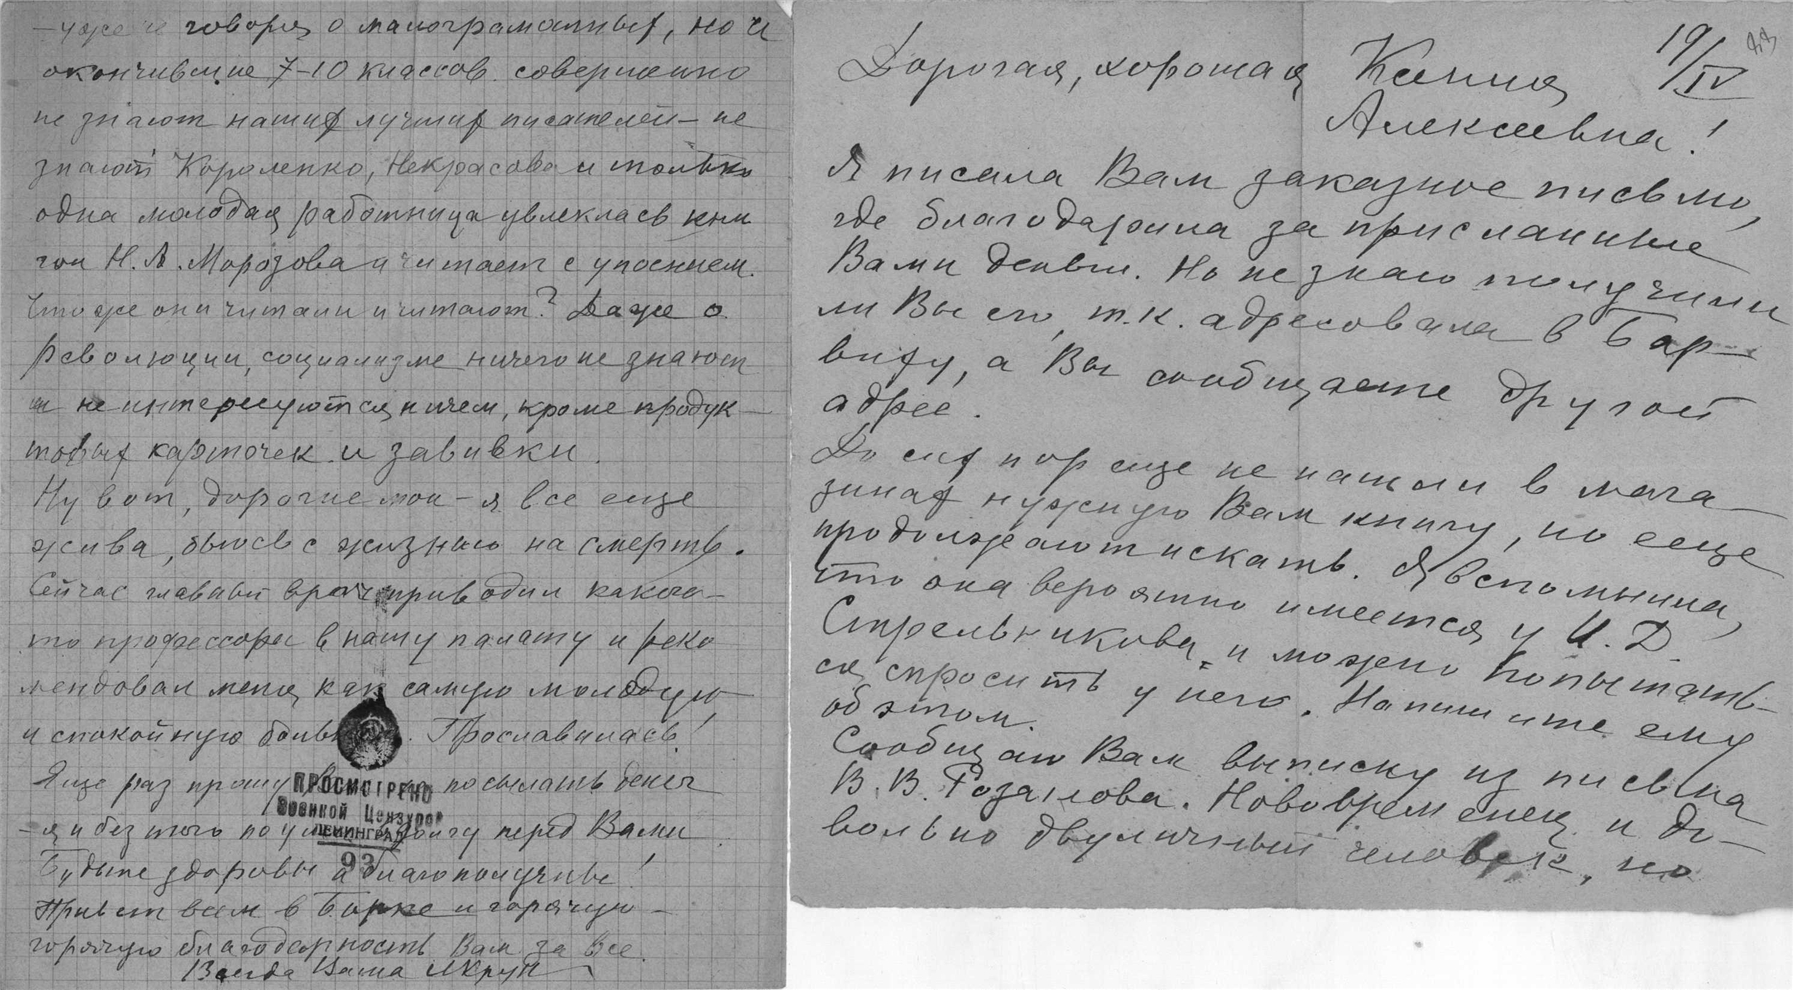 - уже не говоря о малограмотных, но и
окончившие 7-10 классов совершенно
не знают наших лучших писателей - не
знают Короленко, Некрасова и только
одна молодая работница увлеклась кни
гой Н.А. Морозова и читает с упоением.
Что же они читали и читают? Даже о
революции, социализме ничего не знают
и не интересуются ничем, кроме продук-
товых карточек и завивки.
Ну вот, дорогие мои - я все еще
жива, бьюсь с жизнью на смерть.
Сейчас главный врач приводил какого-
то профессора в нашу палату и реко
мендовал меня, как самую молодую
и спокойную больную. Прославилась!
Еще раз прошу посылать денег
- я и без того по уши в долгу перед Вами
Будьте здоровы и благополучны!
Привет всем в Борке и горячую -
горячую благодарность Вам за все.
Всегда Ваша
ПРОСМОТРЕНО
Военной Цензурой
ЛЕНИНГРАД
93
19/IV
Дорогая, хорошая Ксения
Алексеевна!
Я писала Вам заказное письмо,
где благодарила за присланные
Вами деньги. Но не знаю получили
ли Вы его, т.к. адресовала в Бар-
виху, а Вы сообщаете другой
адрес.
До сих пор еще не нашли в мага-
зинах нужную Вам книгу, но еще
продолжают искать. Я вспомнила,
что она вероятно имеется у И.Д.
Стрельникова, и можно попытать-
ся спросить у него. Напишите ему
об этом.
Сообщаю Вам выписку из письма
В.В. Розанова. Нововременец и до-
вольно двуличный человек, но